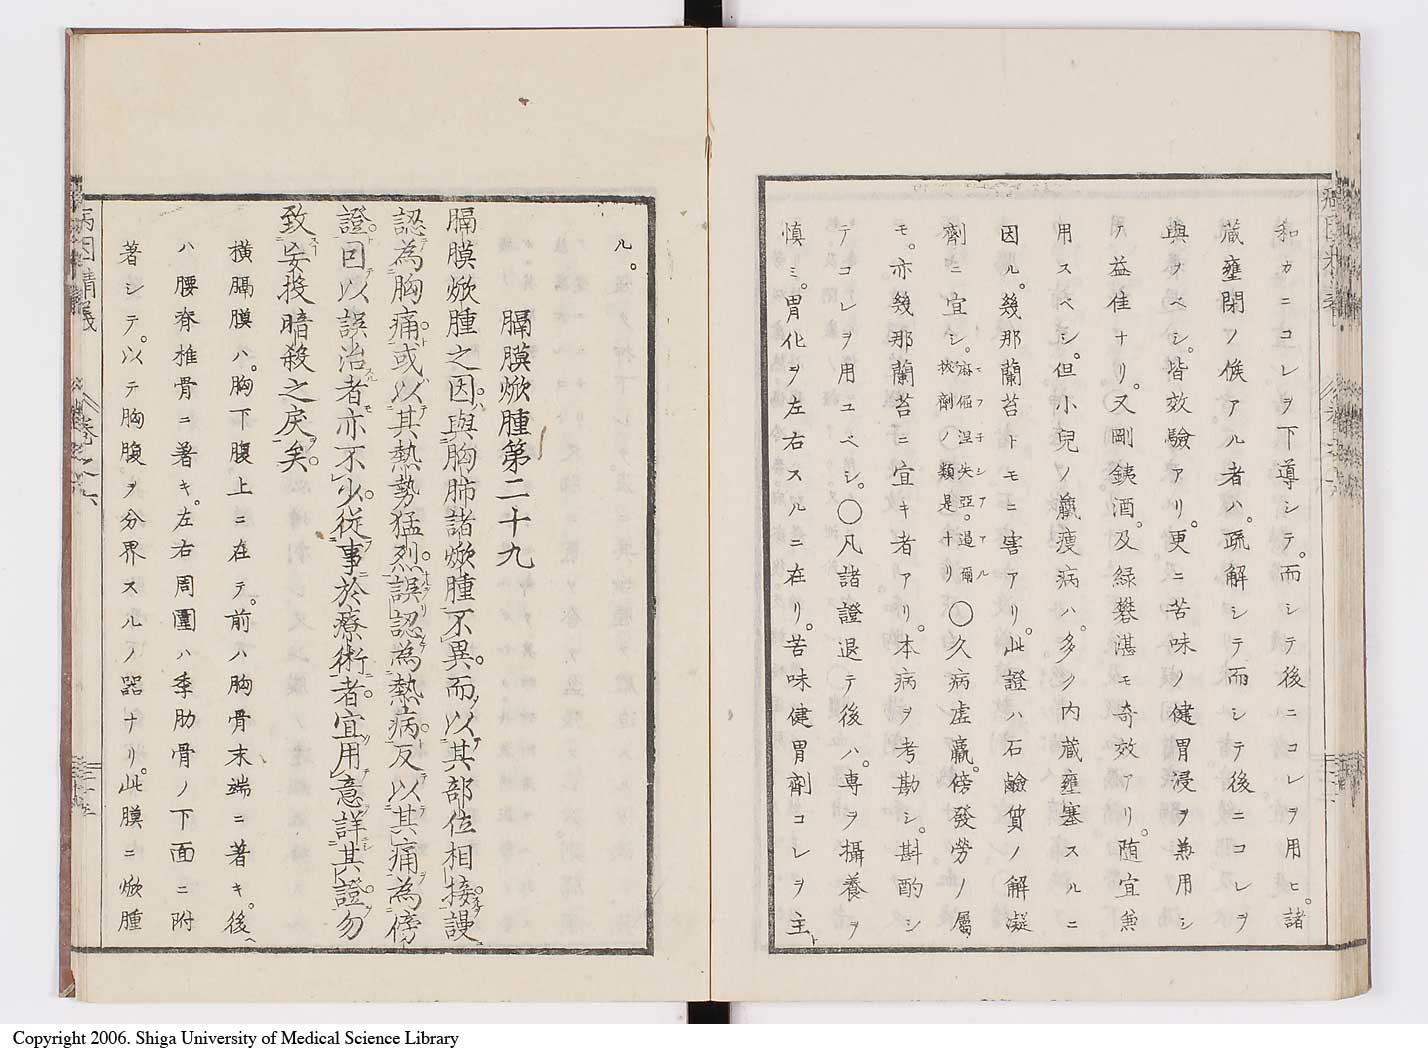 和カニコレヲ下導シテ。而シテ後ニコレヲ用ヒ。諸
藏壅閉ノ候アル者ハ。疏解シテ而シテ後ニコレヲ
與フベシ。皆效驗アリ。更ニ苦味ノ健胃浸ヲ兼用シ
テ益佳ナリ。又剛鐵酒。及緑礬湛モ奇效アリ。随宜兼
用スベシ。但小兒ノ羸瘦病ハ。多ク内藏壅塞スルニ
因ル。幾那蘭苔トモニ害アリ。此證ハ石鹼質ノ解凝
劑ニ宜シ。麻倔涅失亞。過爾挾劑ノ類是ナリ〇久病虚羸。傍發勞ノ屬
モ。亦幾那蘭苔ニ宜キ者アリ。本病ヲ考勘シ。斟酌シ
テコレヲ用ユベシ。〇凡諸證退テ後ハ。専ヲ攝養ヲ
慎ミ。胃化ヲ左右スルニ在リ。苦味健胃劑コレヲ主ト
ル。
膈膜焮腫第二十九
膈膜焮腫之因。與胸肺諸焮腫不異。而以其部位相接。謾
認為胸痛。或以其熱勢猛烈。誤認為熱病。反以其痛為傍
證。因以誤治者亦不少。従事於療術者。宜用意詳其證。勿
致妄投暗殺之戻矣。
横膈膜ハ。胸下腹上ニ在テ。前ハ胸骨末端ニ著キ。後
ハ腰脊椎骨ニ著キ。左右周圍ハ季肋骨ノ下面ニ附
著シテ。以テ胸腹ヲ分界スルノ器ナリ。此膜ニ焮腫
病因精義
巻之六
Copyright 2006. Shiga University of Medical Science Library